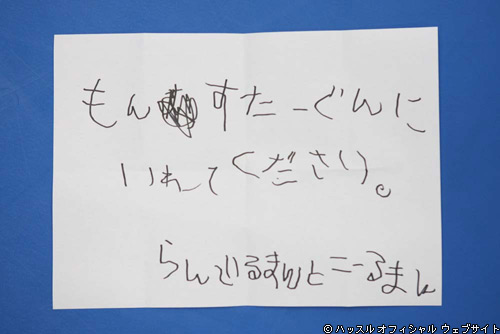 もんすたーぐんに
いれてください。
らんでぃるまんとこーるまん
© ハッスル オフィシャル ウェブサイト